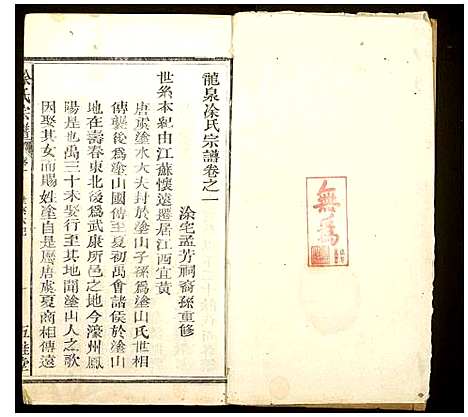 龍泉凃氏宗譜卷之一
凃宅孟芳祠裔孫重修
世系本紀由江蘇懷遠遷居江西宜黃
唐虞塗水大夫封於塗山子孫為塗山氏世相
傳襲後為塗山國傳至夏初禹會諸侯於塗山
地在壽春東北後為武康所邑之地今濠州鳳
陽是也禹三十未娶行至其地聞塗山人之歌
因娶其女而賜姓塗自是歷唐虞夏商相傳遠
凃氏宗譜
無為